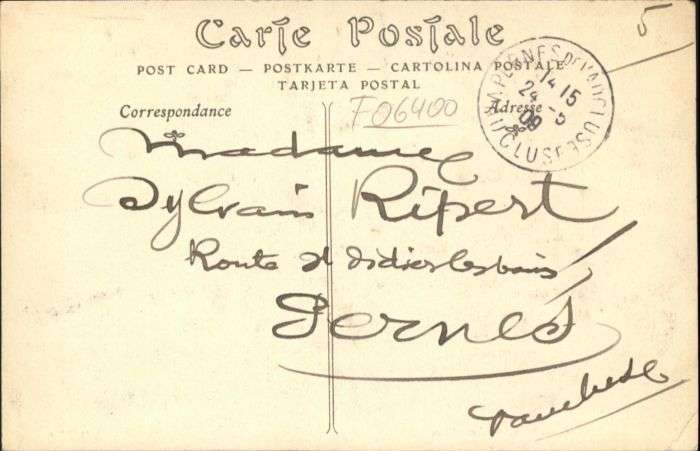 5
Carte Postale
POST CARD — POSTKARTE — CARTOLINA POSTALE
TARJETA POSTAL
Correspondance
Adresse
F06400
PERNES DE VAUCLUSE
14 15
24 -5
09
VAUCLUSE
Madame
Sylvain Ripert
Route St didier les bains
Pernes
Vaucluse